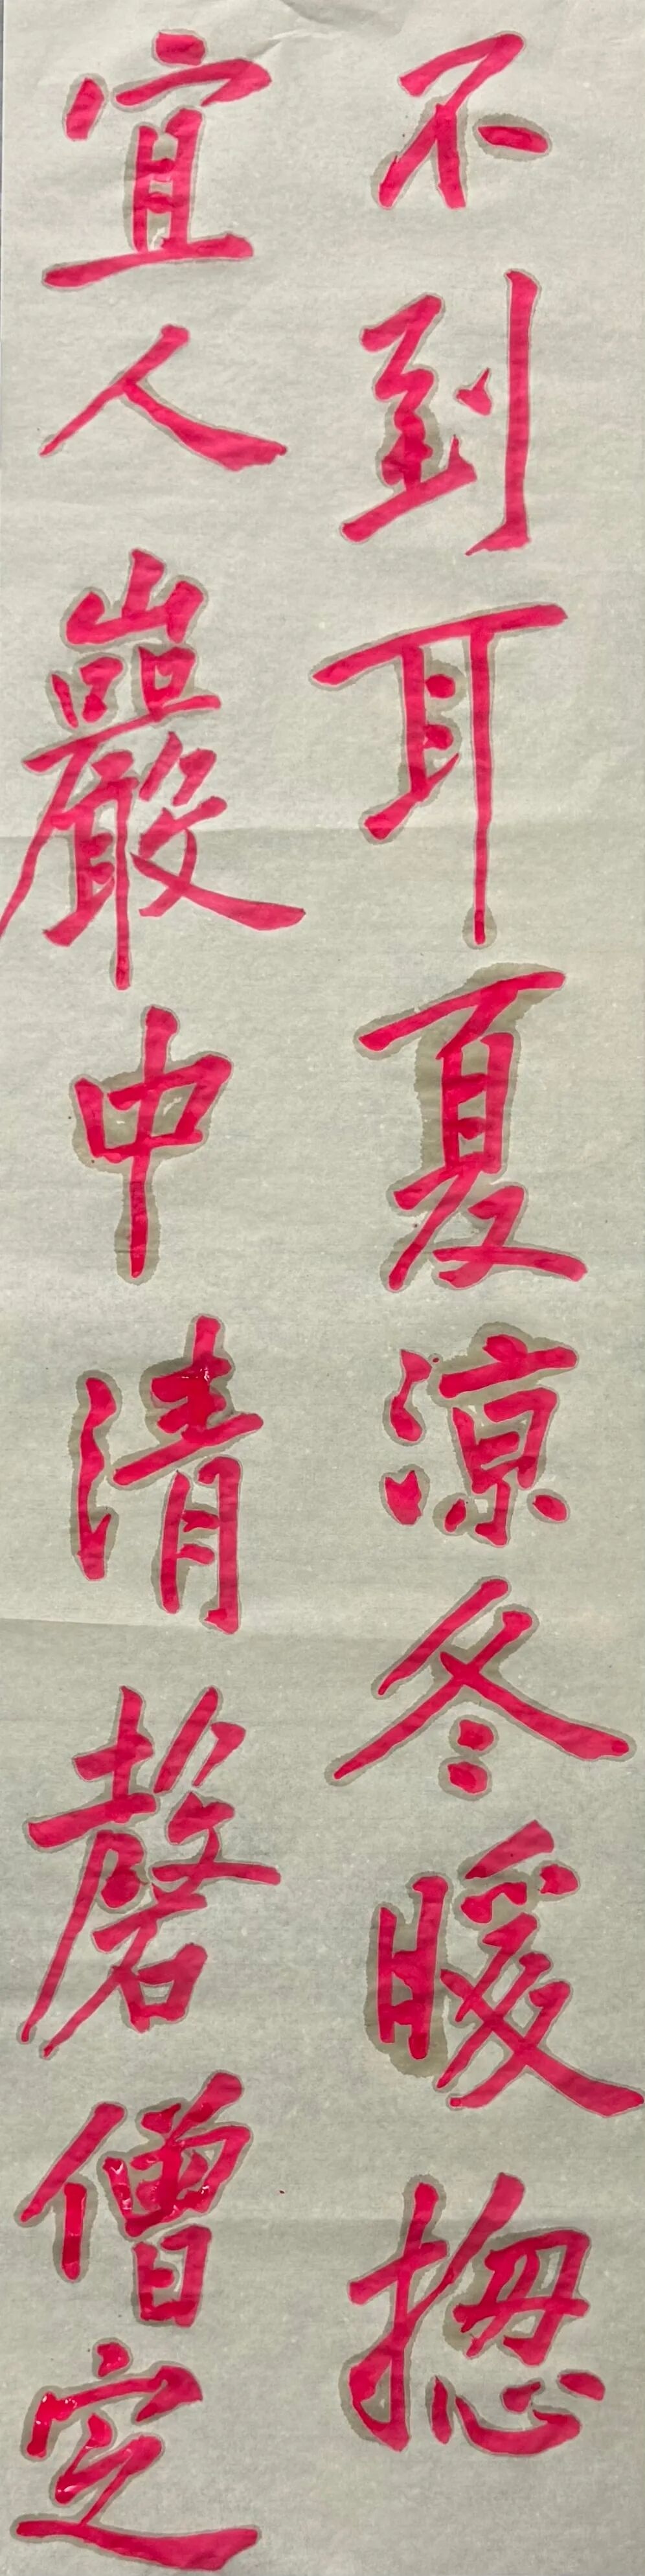 不到耳夏涼冬暖揔
宜人巖中清磬僧定